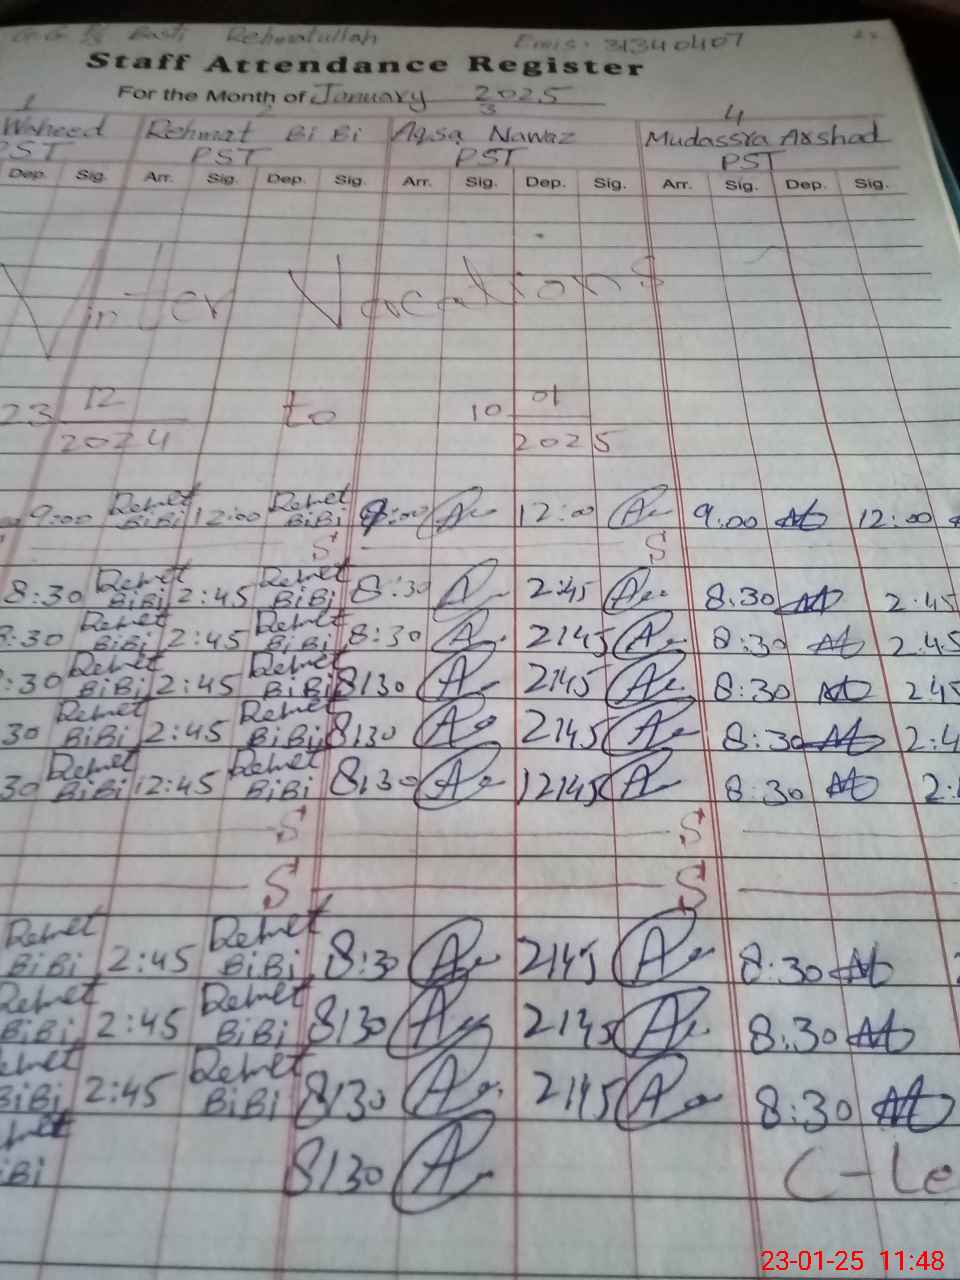 Basti Rehmatullah Emis: 31340407
Staff Attendance Register
For the Month of January 2025
1 2 3 4
Waheed Rehmat BiBi Aqsa Nawaz Mudassra Arshad
PST PST PST PST
Dep. Sig. Arr. Sig. Dep. Sig. Arr. Sig. Dep. Sig. Arr. Sig. Dep. Sig.
Winter Vacations
23 12 2024 to 10 01 2025
9:00 Remet BiBi 12:00 Remet BiBi 9:00 12:00 9:00 12:00
S S
8:30 Remet BiBi 2:45 Remet BiBi 8:30 2:45 8:30 2:45
8:30 Remet BiBi 2:45 Remet BiBi 8:30 2:45 8:30 2:45
:30 Remet BiBi 2:45 Remet BiBi 8:30 2:45 8:30 2:45
30 Remet BiBi 2:45 Remet BiBi 8:30 2:45 8:30 2:4
30 Remet BiBi 12:45 Remet BiBi 8:30 12:45 8:30 2:
S S
S S
Remet BiBi 2:45 Remet BiBi 8:30 2:45 8:30
Remet BiBi 2:45 Remet BiBi 8:30 2:45 8:30
Remet BiBi 2:45 Remet BiBi 8:30 2:45 8:30
iBi 8:30 C-Le
23-01-25 11:48